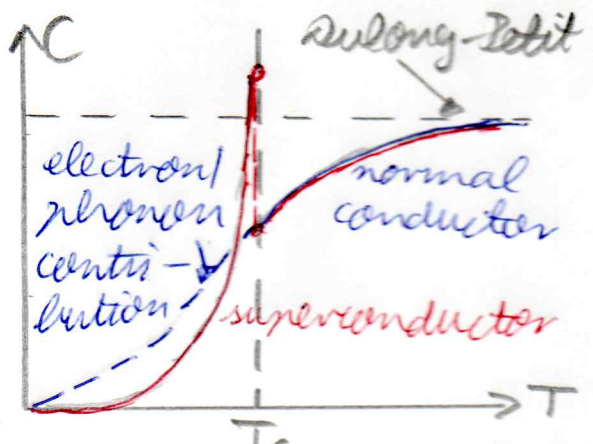 C
Dulong-Petit
electron/
phonon
contri-
bution
normal
conductor
superconductor
T
Tc